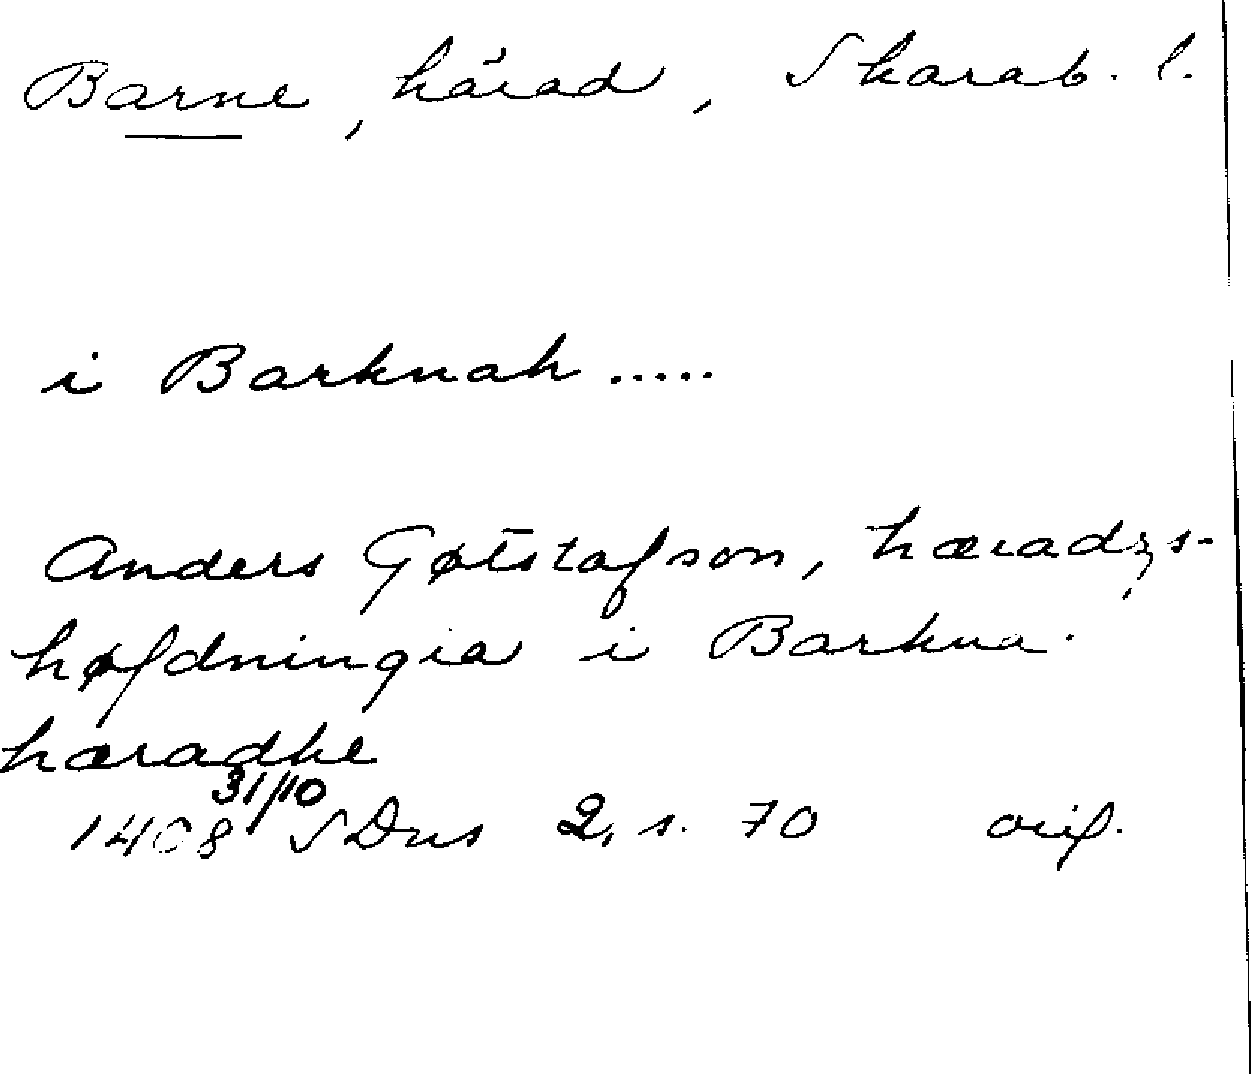 Barne, härad, Skarab. l.
i Barknah.....
Anders Gøtstafson, hæradzs-
høfdningia i Barkna.
hæradhe
1408 31/10 SDns 2, s. 70 orig.